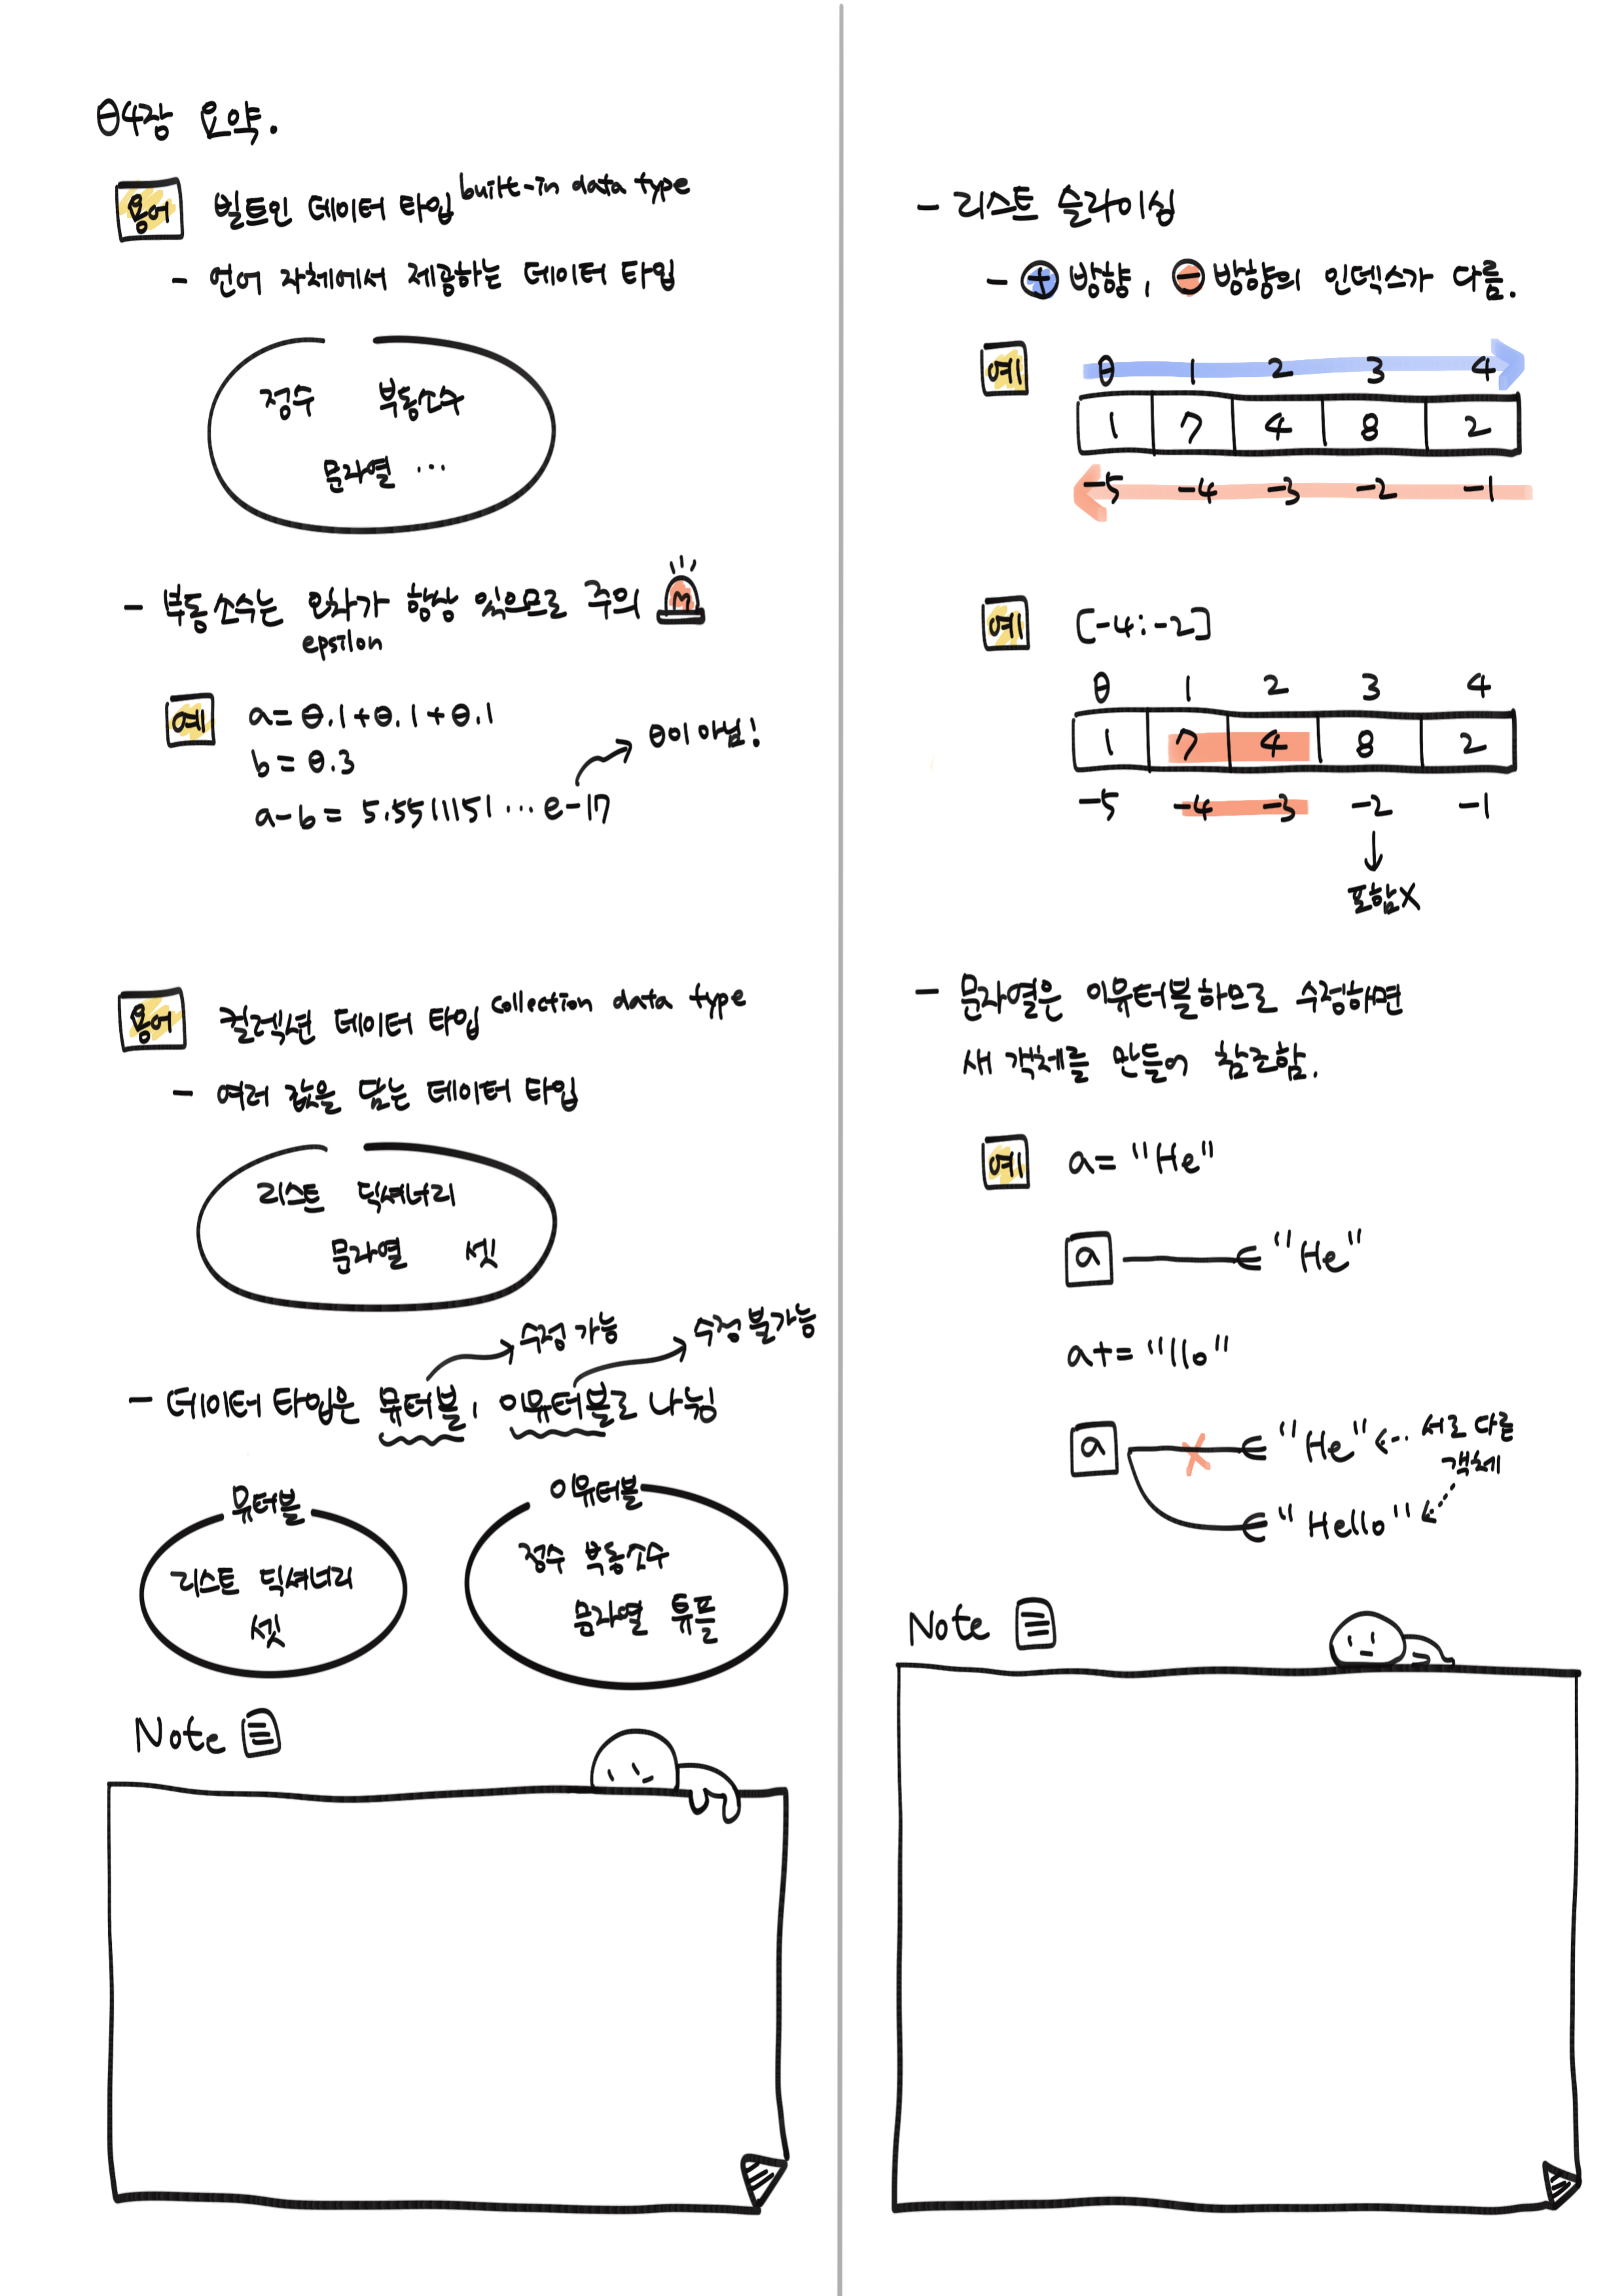 04장 요약.
용어 빌트인 데이터 타입 built-in data type
- 언어 자체에서 제공하는 데이터 타입
정수 부동소수
문자열 ...
- 부동소수는 오차가 항상 있으므로 주의
epsilon
예 a=0.1+0.1+0.1
b=0.3
a-b= 5.5511151...e-17
0이 아님!
용어 컬렉션 데이터 타입 collection data type
- 여러 값을 담는 데이터 타입
리스트 딕셔너리
문자열 셋
수정 가능 수정 불가능
- 데이터 타입은 뮤터블, 이뮤터블로 나뉨
뮤터블
리스트 딕셔너리
셋
이뮤터블
정수 부동소수
문자열 튜플
Note
- 리스트 슬라이싱
- + 방향, - 방향의 인덱스가 다름.
예 0 1 2 3 4
1 7 4 8 2
-5 -4 -3 -2 -1
예 [-4:-2]
0 1 2 3 4
1 7 4 8 2
-5 -4 -3 -2 -1
포함X
- 문자열은 이뮤터블하므로 수정하면
새 객체를 만들어 참조함.
예 a= "He"
a "He"
a+= "llo"
a "He" 서로 다른
객체
"Hello"
Note